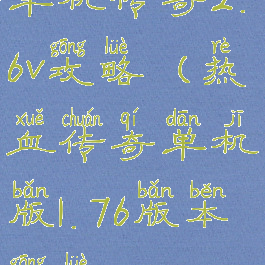 单机传奇2.
gōng lüè rè
6v攻略 (热
xuě chuán qí dān jī
血传奇单机
bǎn bǎn běn
版1.76版本
gōng lüè